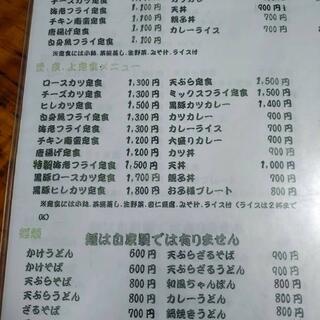 チーズカツ定食 1,100円
海老フライ定食 1,100円
チキン南蛮定食
唐揚げ定食 1,100円
白身魚フライ定食 1,100円
天丼 900円
親子丼 700円
カレーライス 700円
カツカレー 900円
ロースカツ定食 1,300円
チーズカツ定食 1,300円
ヒレカツ定食 1,300円
白身魚フライ定食 1,300円
海老フライ定食 1,300円
チキン南蛮定食 1,200円
唐揚げ定食 1,200円
特製海老フライ定食 1,500円
黒豚ロースカツ定食 1,700円
黒豚ヒレカツ定食 1,800円
天ぷら定食 1,500円
ミックスフライ定食 1,500円
黒豚カツカレー 1,400円
カツカレー 900円
カレーライス 700円
大盛りカレー 900円
カツ丼 900円
天丼 1,000円
親子丼 700円
お子様プレート 800円
麺類
麺は自家製では有りません
かけうどん 600円
かけそば 600円
天ぷらそば 800円
天ぷらうどん 800円
ざるそば 700円
天ぷらざるそば 900円
天ぷらざるうどん 900円
和風ちゃんぽん 800円
カレーうどん 800円
鍋焼きうどん